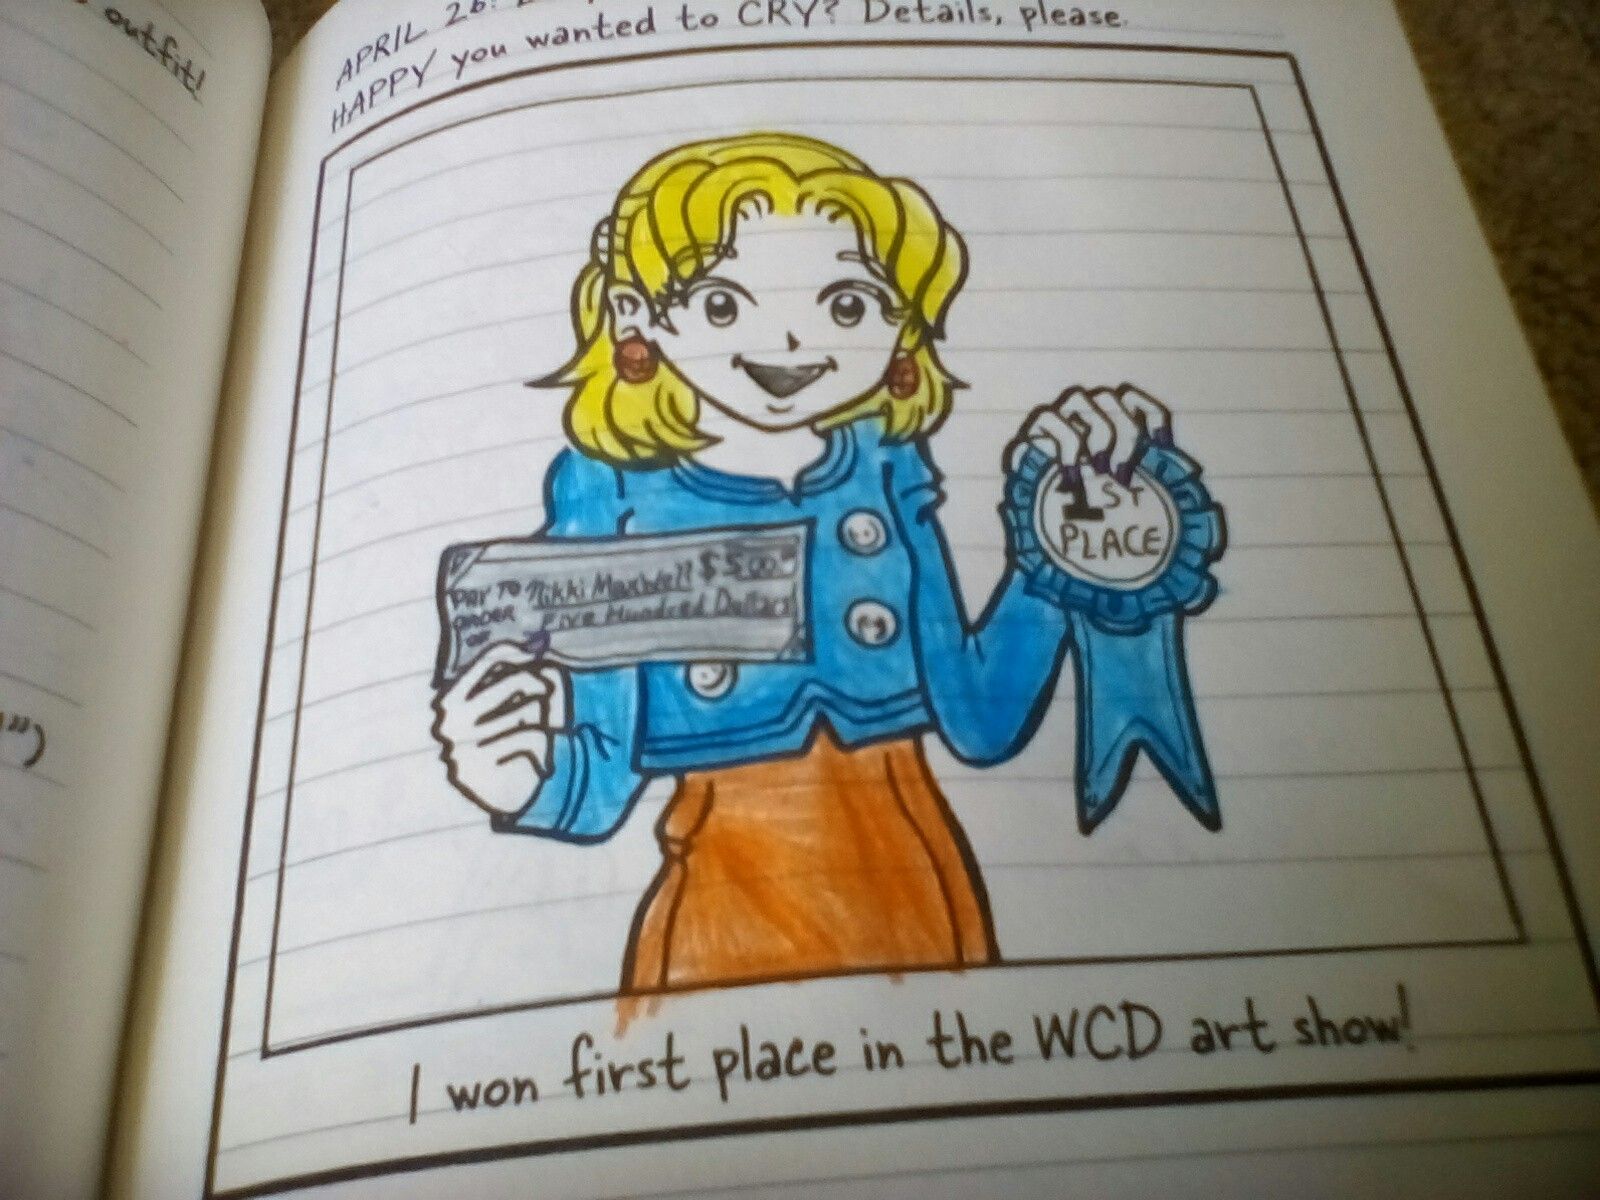 outfit!
APRIL 26:
HAPPY you wanted to CRY? Details, please.
PAY TO Nikki Maxwell $500
ORDER Five Hundred Dollars
OF
1ST
PLACE
I won first place in the WCD art show!